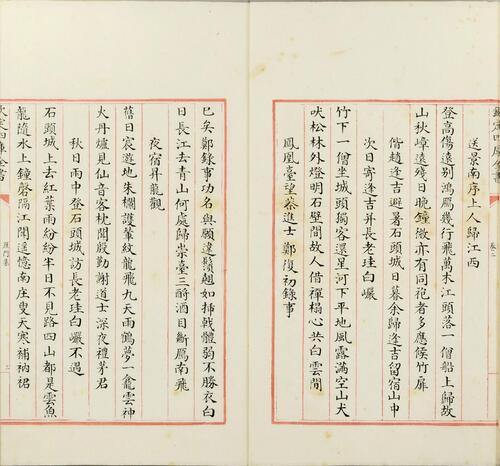 欽定四庫全書
卷二
送景南序上人歸江西
登高傷遠別鴻鴈幾行飛萬木江頭落一僧船上歸故
山秋嶂遠殘日晚鐘微亦有同袍者多應候竹扉
偕趙逢吉避暑石頭城日暮余歸逢吉留宿山中
次日寄逢吉并長老珪白巖
竹下一僧坐城頭獨客還星河下平地風露滿空山犬
吠松林外燈明石壁間故人借禪榻心共白雲閒
鳳凰臺望祭進士鄭復初錄事
已矣鄭錄事功名與願違鬚翹如挿戟體弱不勝衣白
日長江去青山何處歸崇臺三酹酒目斷鴈南飛
夜宿昇龍觀
舊日宸遊地朱欄護輦紋龍飛九天雨鶴夢一龕雲神
火丹爐見仙音客枕聞殷勤謝道士深夜禮茅君
秋日雨中登石頭城訪長老珪白巖不遇
石頭城上去紅葉雨紛紛半日不見路四山都是雲魚
龍隨水上鐘磬隔江聞遥憶南庄叟天寒補衲裙
欽定四庫全書
雁門集
二